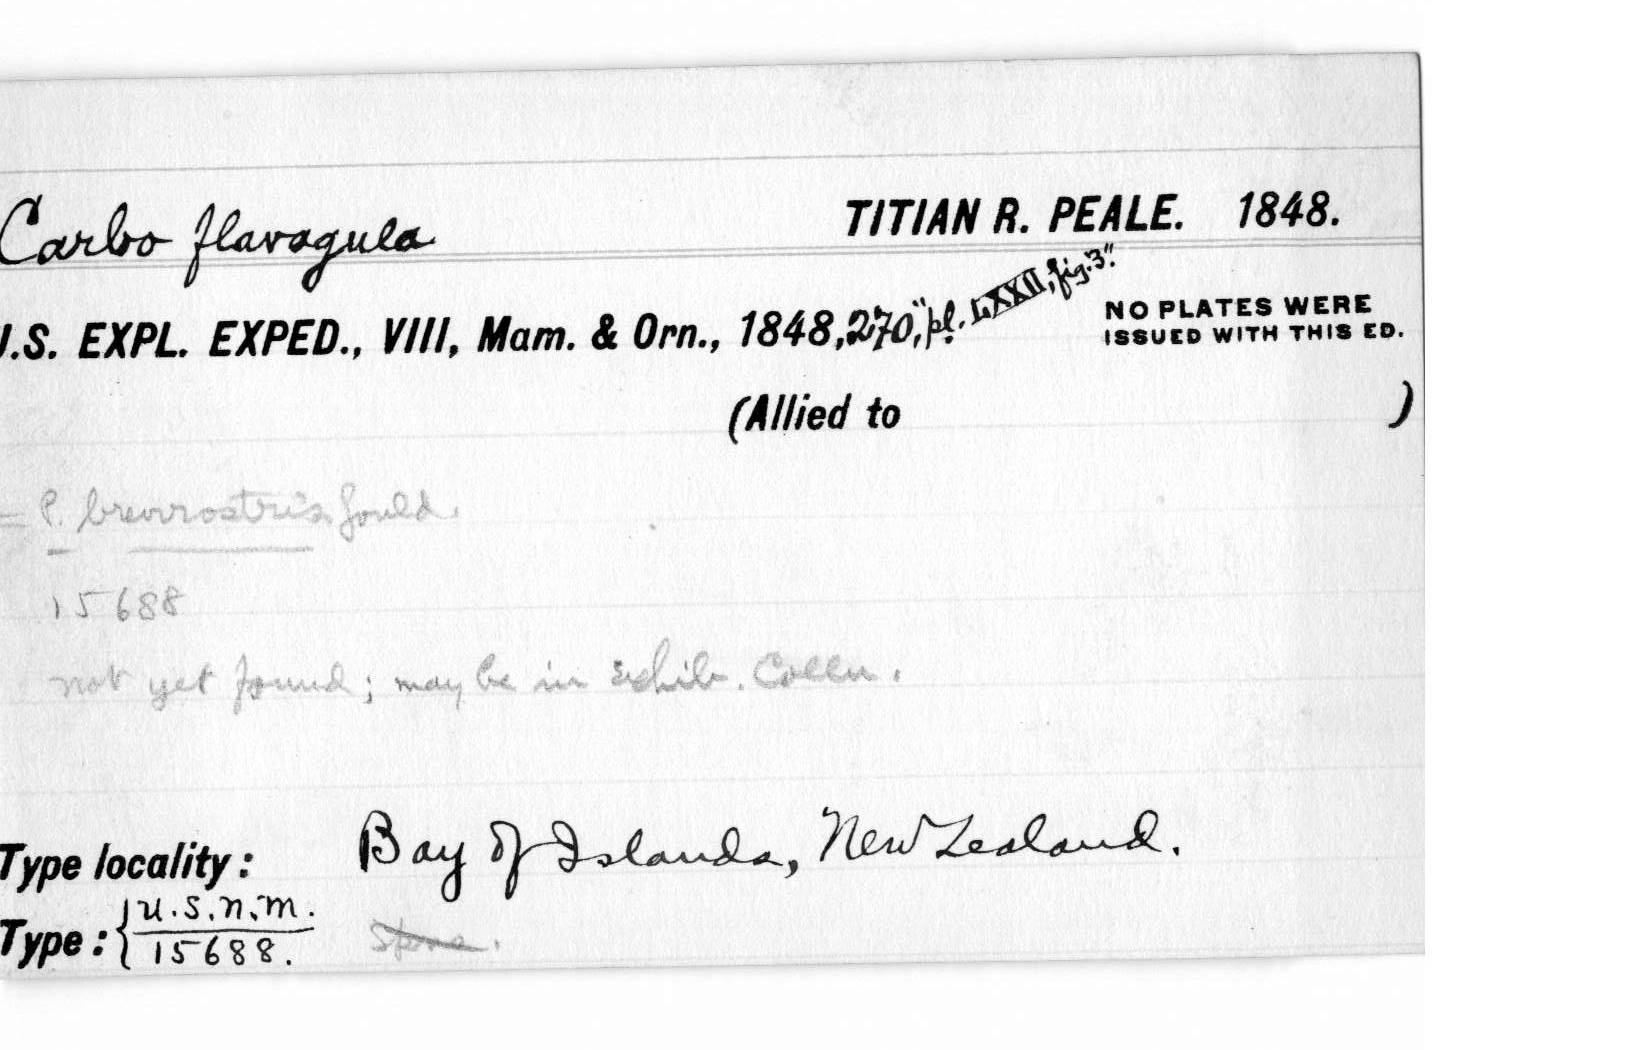 Carbo flavagula
TITIAN R. PEALE. 1848.
U.S. EXPL. EXPED., VIII, Mam. & Orn., 1848, 270, "pl. LXXII, fig. 3".
NO PLATES WERE
ISSUED WITH THIS ED.
(Allied to )
= P. brevirostris Gould.
15688
not yet found; may be in Exhib. Colln.
Type locality: Bay of Islands, New Zealand.
Type: { U.S.N.M.
15688.